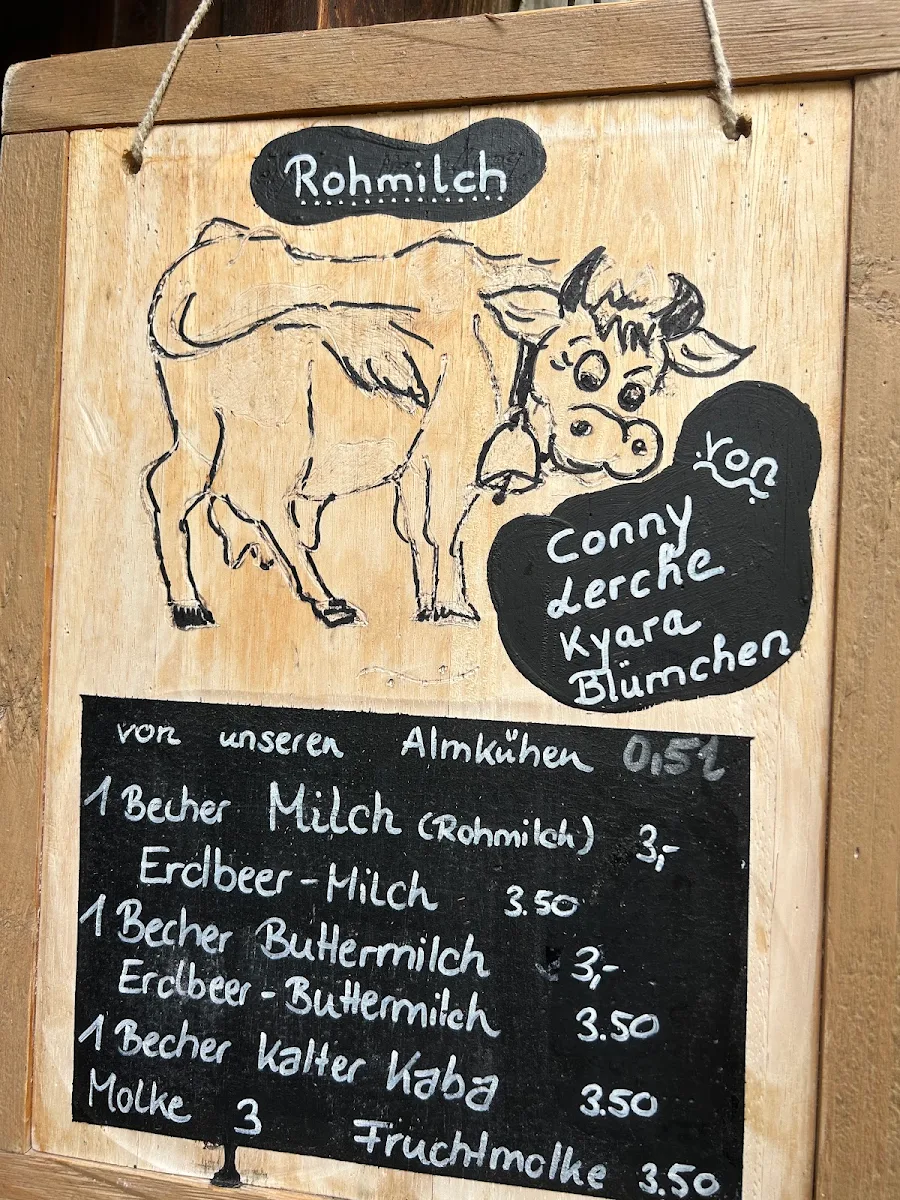 Rohmilch
von
Conny
Lerche
Kyara
Blümchen
von unseren Almkühen 0,5l
1 Becher Milch (Rohmilch) 3,-
Erdbeer-Milch 3.50
1 Becher Buttermilch 3,-
Erdbeer-Buttermilch 3.50
1 Becher Kalter Kaba 3.50
Molke 3 Fruchtmolke 3.50